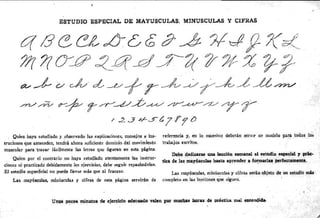 ESTUDIO ESPECIAL DE MAYUSCULAS, MINUSCULAS Y CIFRAS
A B C Ch D E E F G H I J K L
M N O P Q R S T U V W X Y Z
a b c ch d e f g h i j k l ll m
n ñ o p q r s t u v w x y z
1 2 3 4 5 6 7 8 9 0
Quien haya estudiado y observado las explicaciones, consejos e ins-
trucciones que anteceden, tendrá ahora suficiente dominio del movimiento
muscular para trazar fácilmente las letras que figuran en esta página.
Quien por el contrario no haya estudiado atentamente las instruc-
ciones ni practicado debidamente los ejercicios, debe seguir repasándolos.
El estudio superficial no puede llevar más que al fracaso.
Las mayúsculas, minúsculas y cifras de esta página servirán de
referencia y, en lo sucesivo deberán servir de modelo para todos los
trabajos escritos.
Debe dedicarse una lección semanal al estudio especial y prác-
tica de las mayúsculas hasta aprender a formarlas perfectamente.
Las mayúsculas, minúsculas y cifras serán objeto de un estudio más
completo en las lecciones que siguen.
Unos pocos minutos de ejercicio adecuado valen por muchas horas de práctica mal entendida.